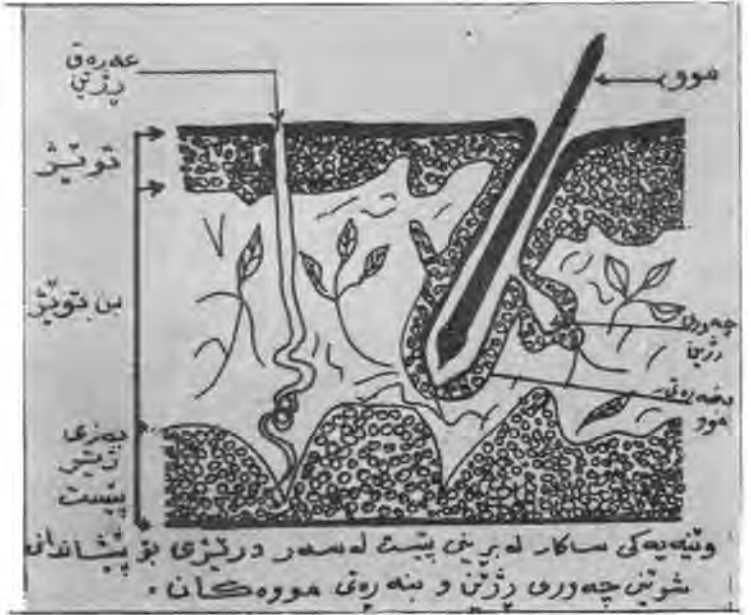 عەرەق
ڕژێن
موو
توێژ
بن توێژ
چەوری
ڕژێن
بنەڕەتی
موو
بەزی
ژێر
پێست
وێنەیەکی ساکار لەبڕینی پێست لەسەر درێژی بۆ پیشاندانی
شوێنی چەوری ڕژێن و بنەڕەتی مووەکان.